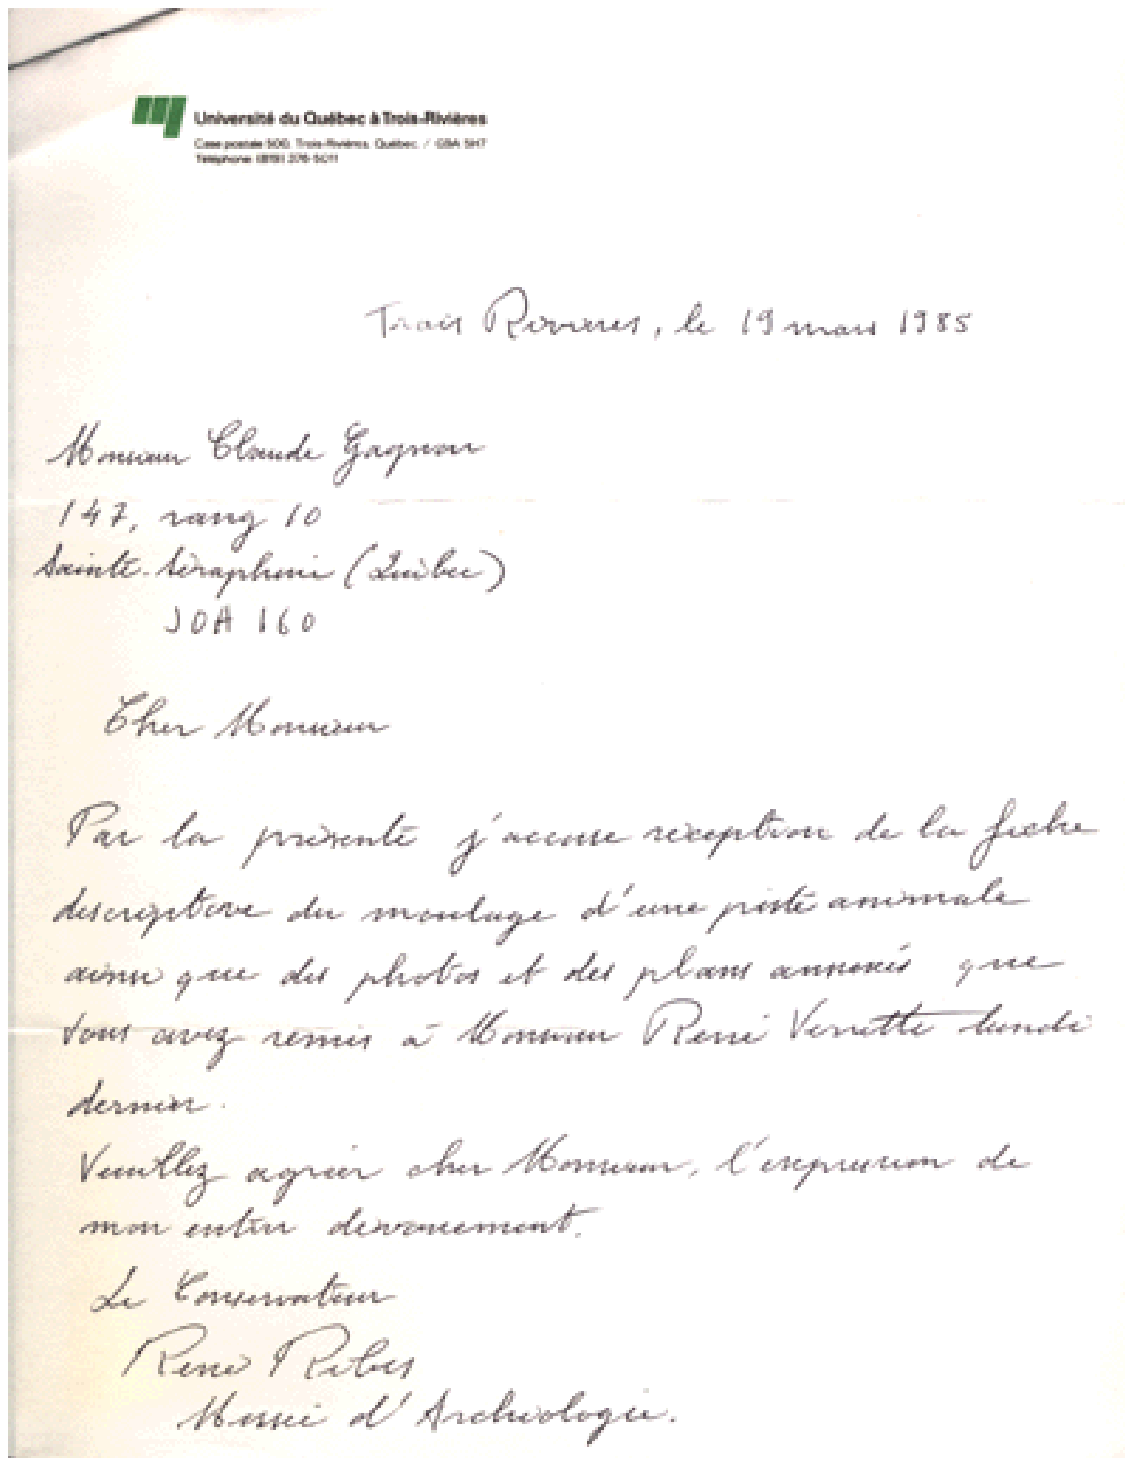 Université du Québec à Trois-Rivières
Case postale 500, Trois-Rivières, Québec, / G9A 5H7
Téléphone: (819) 376-5011
Trois Rivières, le 19 mars 1985
Monsieur Claude Gagnon
147, rang 10
Sainte-Séraphine (Québec)
J0A 1E0
Cher Monsieur
Par la présente j'accuse réception de la fiche
descriptive du moulage d'une piste animale
ainsi que des photos et des plans annexés que
vous avez remis à Monsieur René Verrette lundi
dernier.
Veuillez agréer cher Monsieur, l'expression de
mon entier dévouement.
Le Conservateur
René Ribes
Musée d'Archéologie.